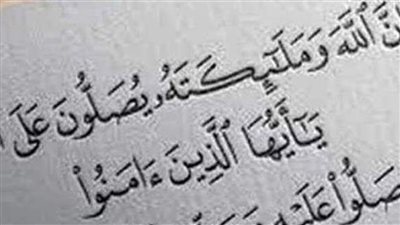 نَّ ٱللَّهَ وَمَلَـٰٓئِكَتَهُۥ يُصَلُّونَ عَلَى
يَـٰٓأَيُّهَا ٱلَّذِينَ ءَامَنُوا۟
صَلُّوا۟ عَلَيْهِ